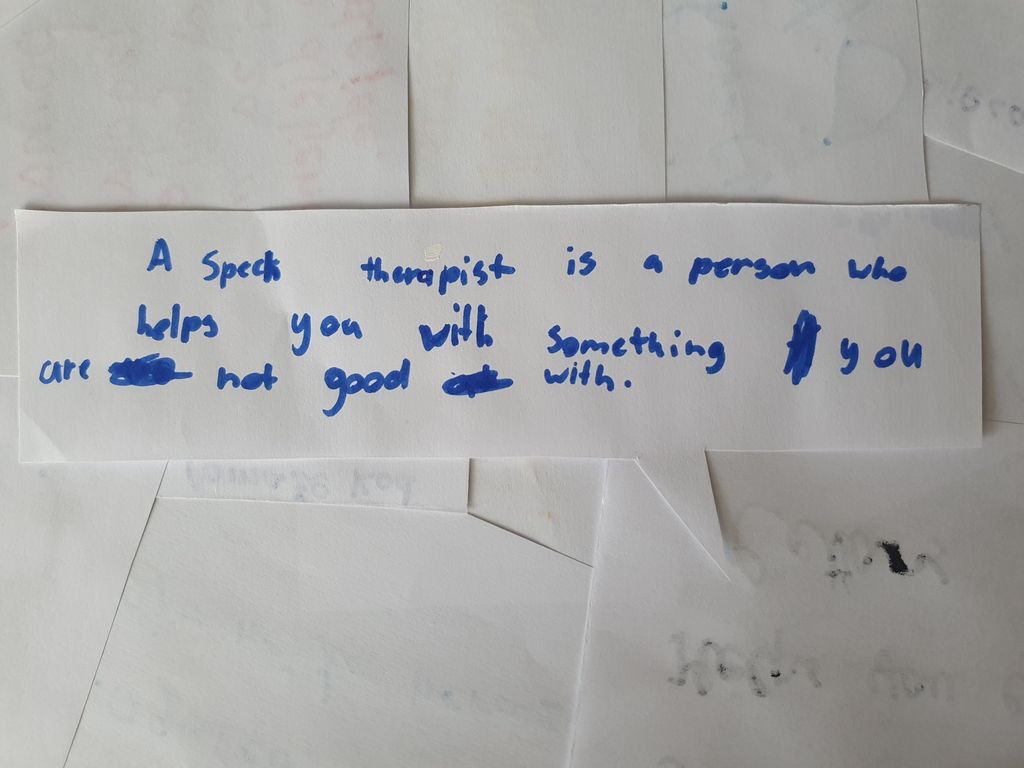 A Speck therapist is a person who
helps you with something you
are not good with.